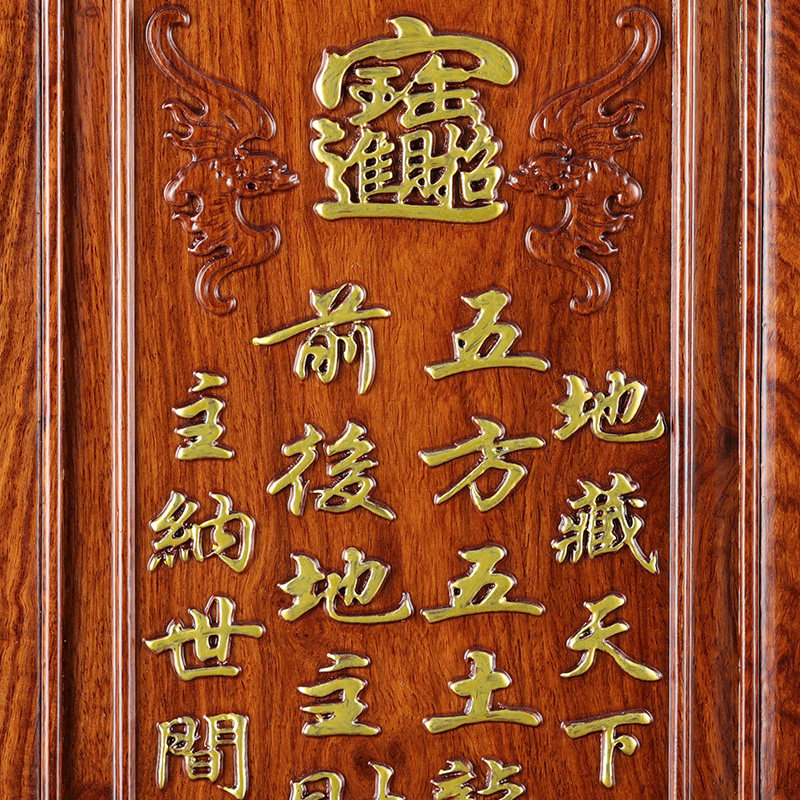 招財進寶
地藏天下
五方五土龍
前後地主
主納世間